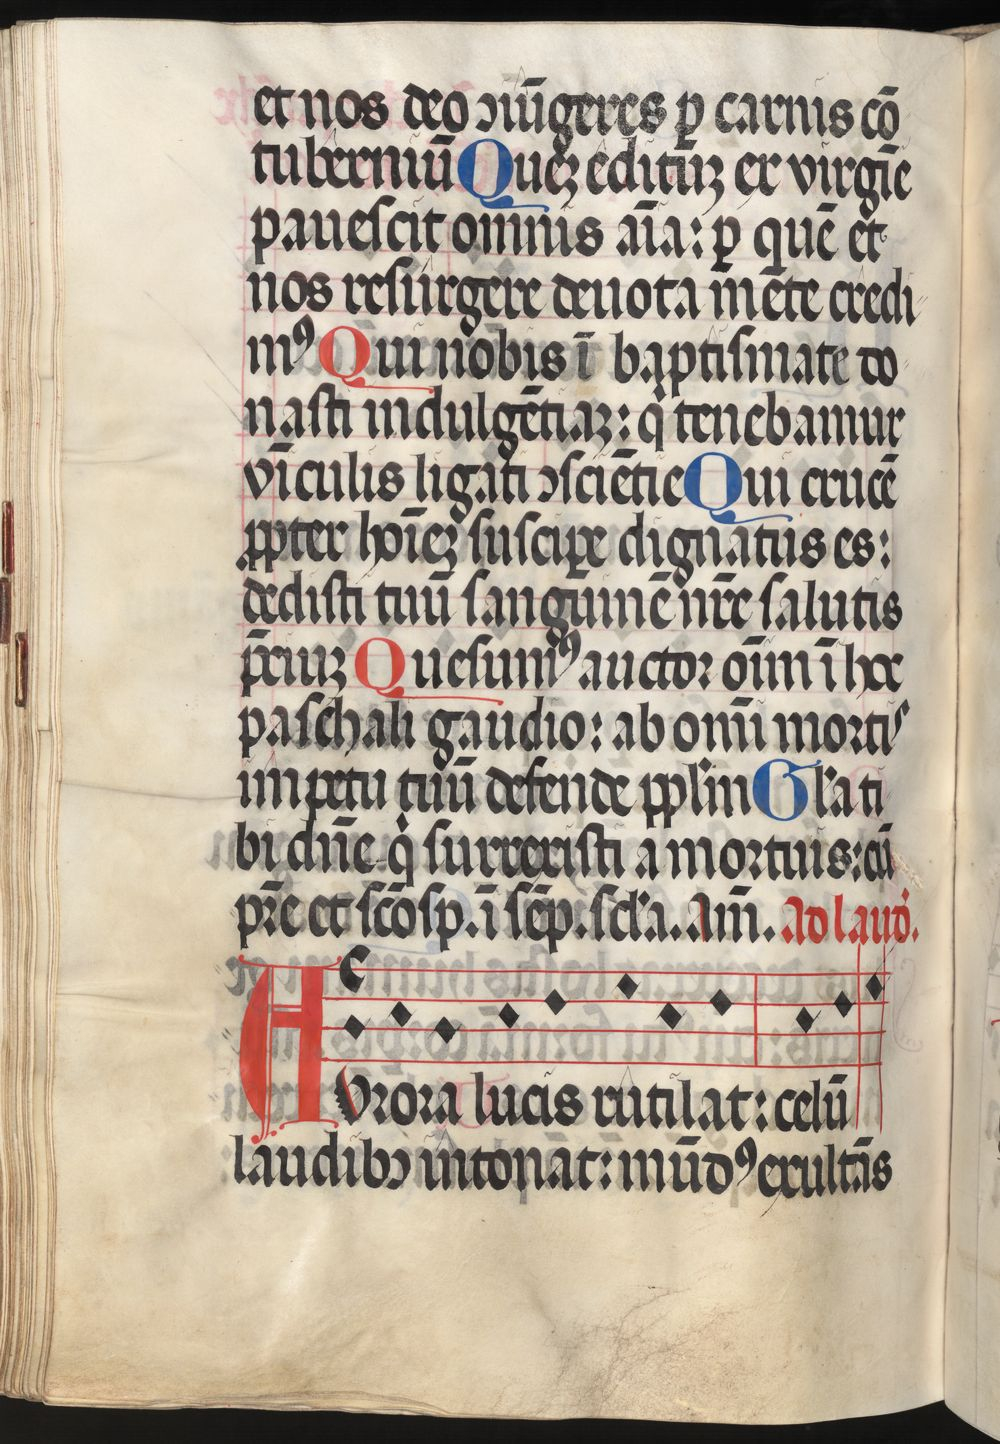 et nos deo ꝯiūgeres ꝑ carnis cō
tuberniū Quez editūz ex virgīe
pauescit omnis aīa: ꝑ quē et
nos resurgere deuota mēte credi
mꝰ Qui nobis ī baptismate do
nasti indulgētiaz: q̇ tenebamur
vīculis ligati ꝯsciētie Qui crucē
ꝓpter hoīez suscipe dignatus es:
dedisti tuū sanguinē nr̄e salutis
p̄ciuz Quesumꝰ auctor oīm ī hoc
paschali gaudio: ab omī mortis
impetu tuū defende pplm̄ Gl̄a ti
bi dn̄e q̇ surrexisti a mortuis: cū
pr̄e et scō sp. ī sēp. scl̄a. Am̄. Ad laud̓.
Aurora lucis rutilat: celū
laudibꝯ intonat: mūdꝰ exultās